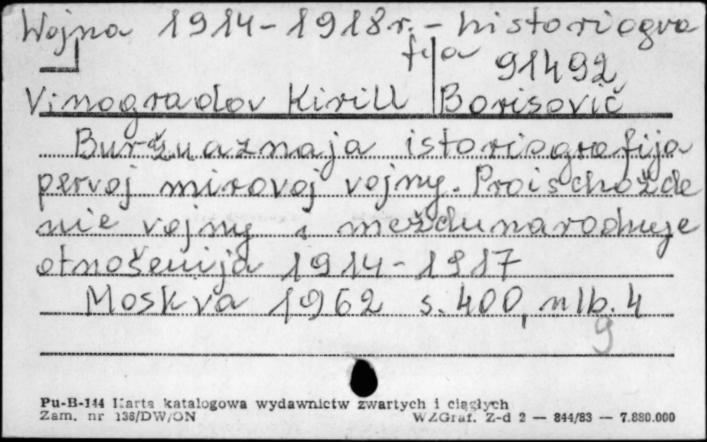 Wojna 1914-1918r. - historiogra
fija
91492
Vinogradov Kirill Borisovič
Buržuaznaja istoriografija
pervoj mirovoj vojny. Proischožde
nie vojny i meždunarodnyje
otnošenija 1914-1917
Moskva 1962 s. 400, nlb. 4
9
Pu-B-144 Karta katalogowa wydawnictw zwartych i ciągłych
Zam. nr 136/DW/ON WZGraf. Z-d 2 — 844/83 — 7.880.000